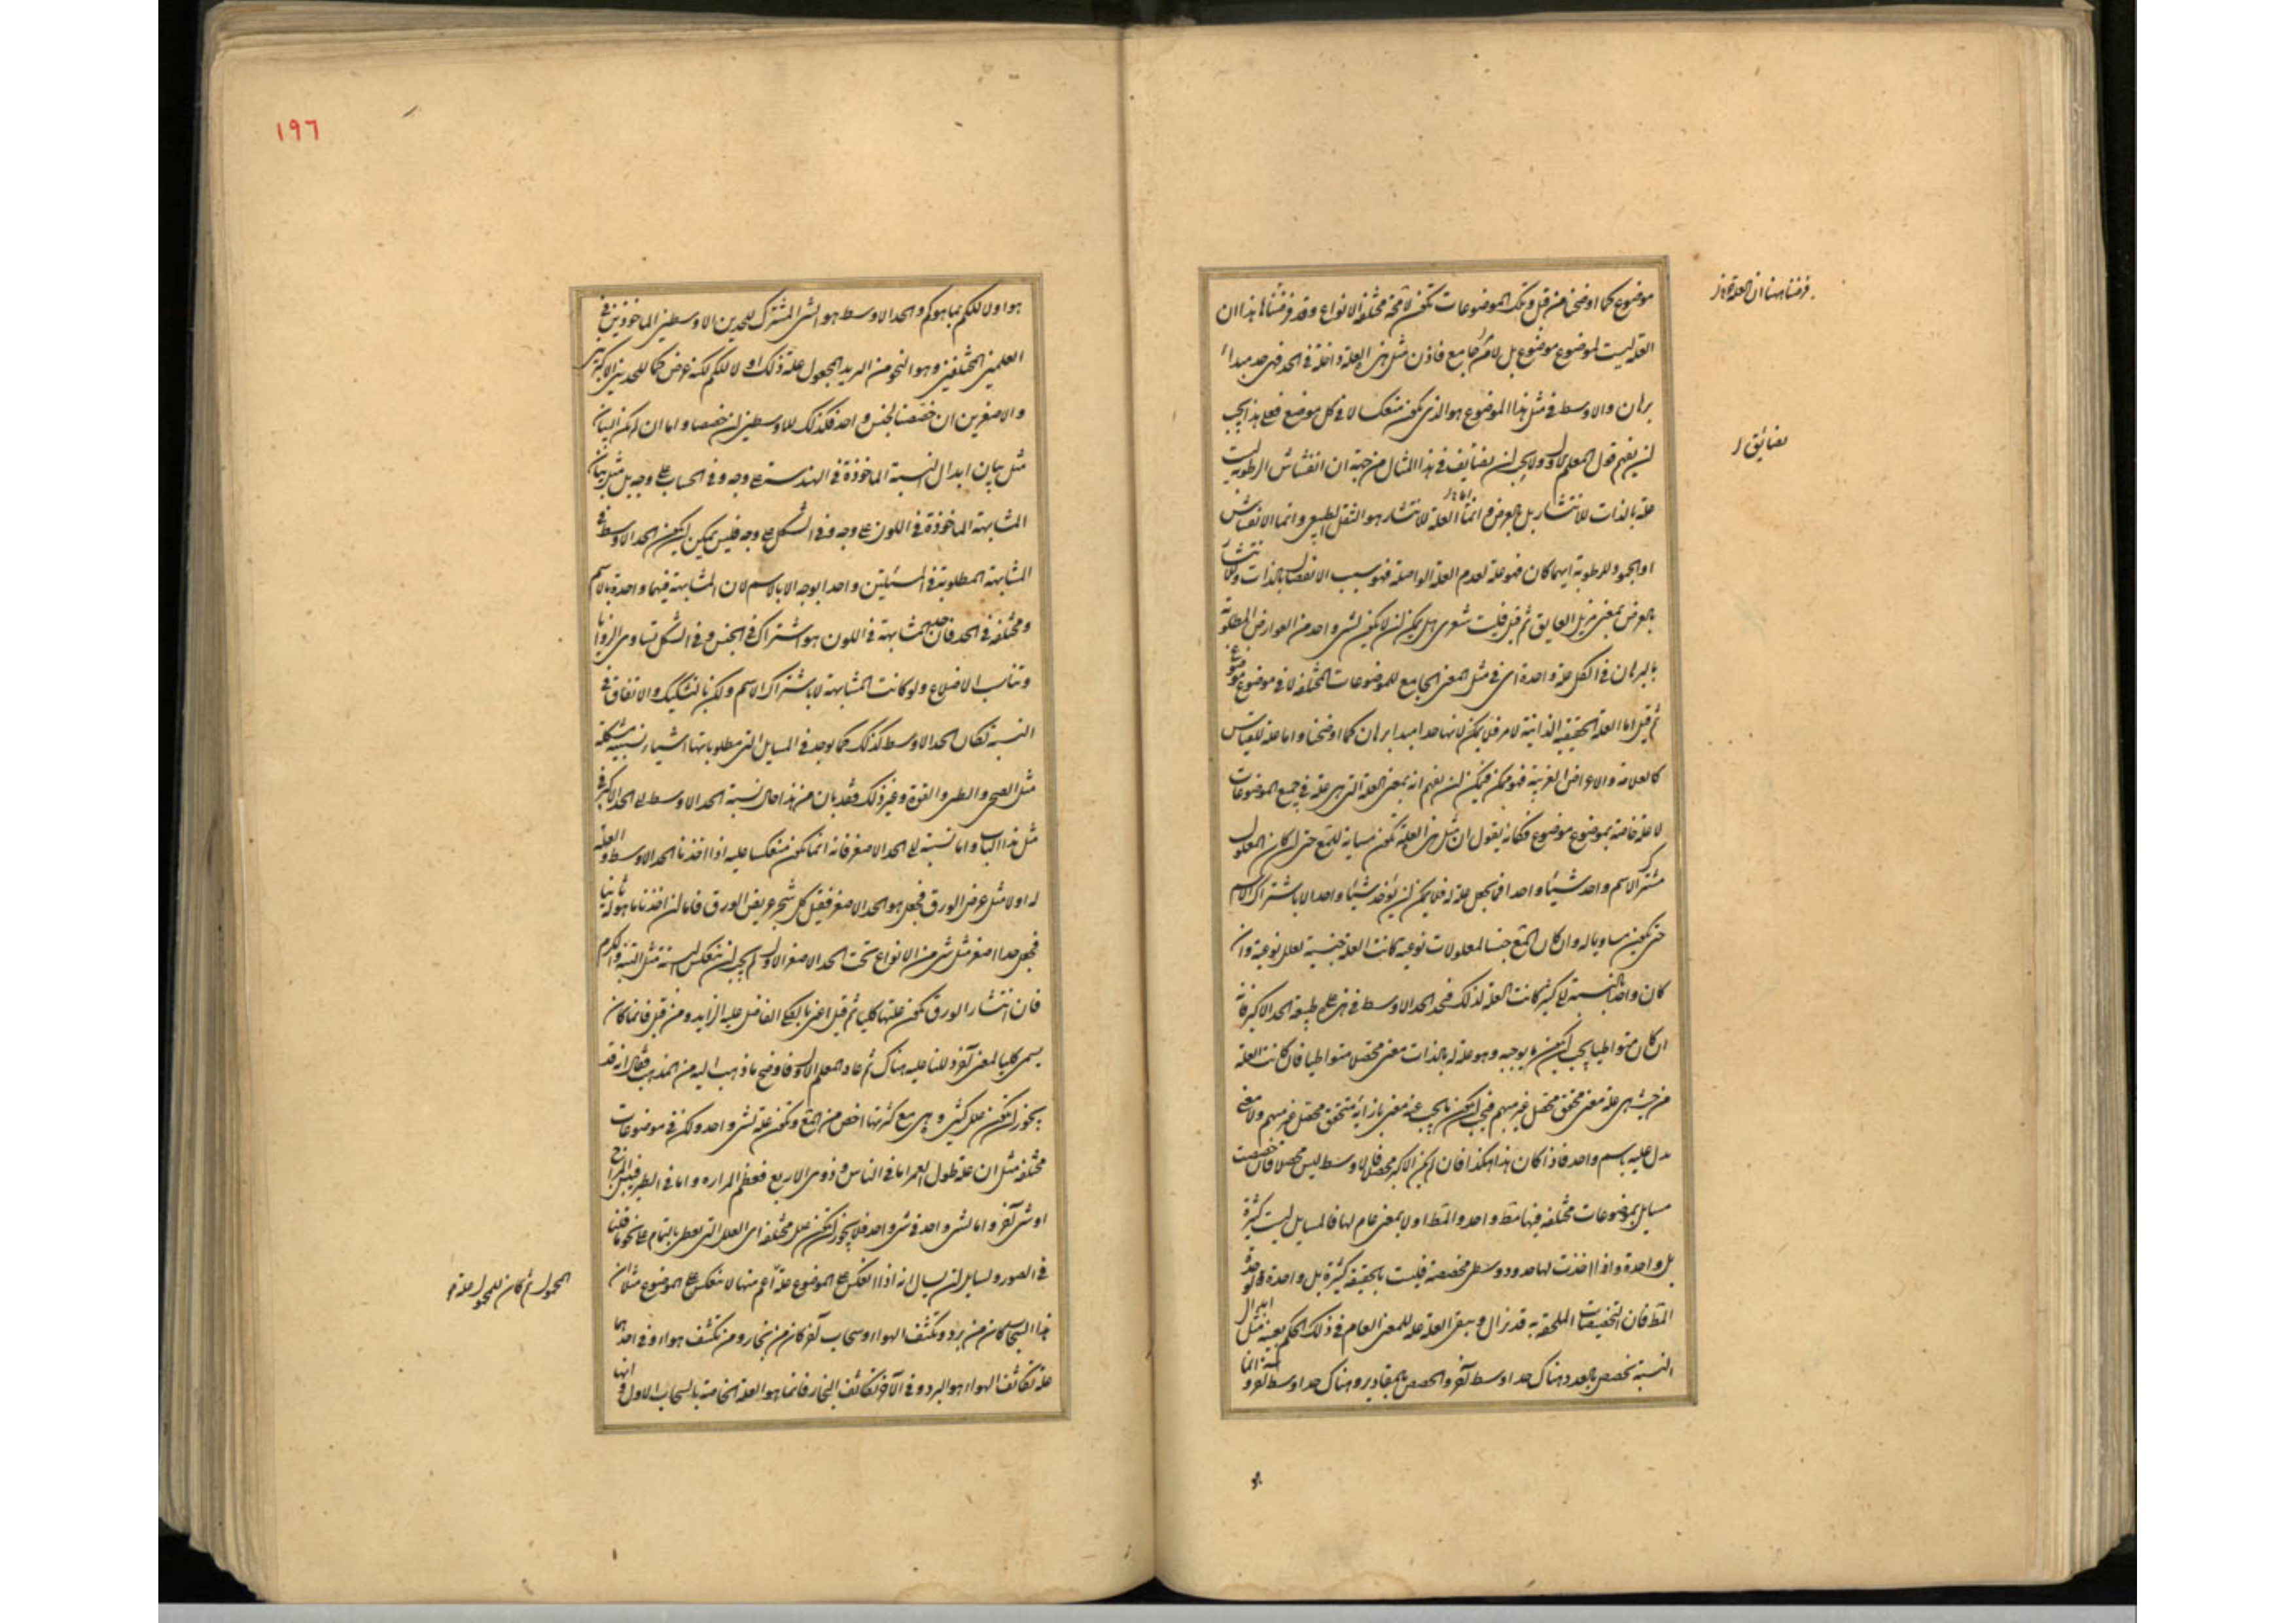 موضوع كما اوضحنا من قبل وتلك الموضوعات تكون لا محة مختلفة الانواع وقد فرضنا هذا ان
العلة ليست لموضوع موضوع بل لامر جامع فاذن مثل هذه العلة داخلة في الحد فهي حد مبداء
برهان والاوسط في مثل هذا الموضوع هو الذي يكون منعكسا لا في كل موضع فعلى هذا يجب
ان يفهم قول المعلم الاول ولا يجب ان يضايق في هذا المثال من جهة ان انفشاش الرطوبة ليست
علة بالذات للانتثار بل بالعرض وانما العلة للانتثار هو الثقل الطبيعي وانما الانفشاش
او الجمود للرطوبة ايهما كان فهو علة لعدم العلة الواصلة فهو سبب الانفصال بالذات وللانتثار
بالعرض بمعنى مزيل العايق ثم قيل فليت شعري هل يمكن ان لا يكون لشيء واحد من العوارض المطلوبة
بالبرهان في الكل علة واحدة اي في مثل المعنى الجامع للموضوعات المختلفة لا في موضوع موضوع
ثم قيل اما العلة الحقيقية الذاتية لامر فلا يمكن لانها حد مبدا برهان كما اوضحنا واما علة للقياس
كالعلامة والاعراض الغريبة فهو ممكن فيمكن ان يفهم انه بمعنى العلة التي هي علة في جميع الموضوعات
لا علة خاصة بموضوع موضوع فكانه يقول ان مثل هذه العلة تكون مساوية للمع حتى ان كان المعلول
مشترك الاسم واحد شيئا واحدا فما يجعل علة له فلا يمكن ان يؤخذ شيئا واحدا الا باشتراك الاسم
حتى يكون مساويا له وان كان المع جنسا لمعلولات نوعية كانت العلة جنسية لعلل نوعية وان
كان واحدا بالنسبة الى كثير كانت العلة كذلك فحد الحد الاوسط في هذه على طبيعة الحد الاكبر فانه
ان كان متواطيا يجب ان يكون ما يوجبه وهو علة له بالذات معنى محصلا متواطيا فان كانت العلة
من حيث هي علة معنى محقق محصل غير مبهم فيجب ان يكون ما يجب عنه معنى بازائه متحقق محصل غير مبهم ولا معنى
يدل عليه باسم واحد فاذا كان هذا هكذا فان لم يكن الاكبر محصلا فالاوسط ليس محصلا فان خصصت
مسايل بموضوعات مختلفة فيها مط واحد والمط اولا بمعنى عام لها فالمسايل ليست كثيرة
بل واحدة واذا اخذت لها حدود وسطى مخصصة فليست بالحقيقة كثيرة بل واحدة
المط فان التخصيصات الملحقة به قد تزال ويبقى العلة علة للمعنى العام في ذلك الحكم بعينه مثل ابدال
النسبة تخصص بالعدد وهناك حد اوسط آخر وتخصص بالمقادير وهناك حد اوسط آخر و
فرضنا ههنا ان العلة
يضايق
١٩٦
هو اولا للكم بما هو كم والحد الاوسط هو الشيء المشترك للحدين الاوسطين الماخوذين في
العلمين المختلفين وهو النحو من التزيد المجعول علة ذلك اولا للكم لكنه عرض كما للحدين الاكبرين
والاصغرين ان خصصنا لجنس واحد فكذلك للاوسطين ان خصصا واما ان لم يكن البيان
مثل بيان ابدال النسبة الماخوذة في الهندسة على وجه وفي الحساب على وجه بل مثل بيان
المشابهة الماخوذة في اللون على وجه وفي الشكل على وجه فليس يمكن ان يكون الحد الاوسط في
المشابهة المطلوبة في المسئلتين واحدا بوجه الا بالاسم لان المشابهة فيهما واحدة بالاسم
ومختلفة في الحد فان المشابهة في اللون هو اشتراك في الجنس وفي الشكل تساوي الزوايا
وتناسب الاضلاع ولو كانت المشابهة لا باشتراك الاسم ولكن بالتشكيك والاتفاق في
النسبة لكان الحد الاوسط كذلك كما يوجد في المسايل التي مطلوباتها اشياء نسبية مشككة
مثل الصحي والطبي والقوة وغير ذلك فقد بان من هذا حال نسبة الحد الاوسط الى الحد الاكبر في
مثل هذا الباب واما نسبته الى الحد الاصغر فانه انما يكون منعكسا عليه اذا اخذنا الحد الاوسط والعلة
له اولا مثل عرض الورق فجعل هو الحد الاصغر فقيل كل شجر عريض الورق فاما ان اخذنا ما هو له ثانيا
فجعل حدا اصغر مثل شيء من الانواع تحت الحد الاصغر الاول لم يجب ان ينعكس البتة مثل التينة والكرم
فان انتثار الورق تكون علتها كليا ثم قيل اعني بالكلي الفاضل عليه الزايد ومن قبل فانما كان
يسمى كليا لمعنى آخر دللنا عليه هناك ثم عاد المعلم الاول فاوضح ما ذهب اليه من المذهب فقال انه قد
يجوز ان تكون علل كثيرة هي مع كثرتها اخص من المع وتكون علة لشيء واحد ولكن في موضوعات
مختلفة مثل ان علة طول العمر اما في الناس وذوي الاربع فعظم المرارة واما في الطير فيبس المزاج
او شيء آخر واما لشيء واحد في شيء واحد فلا يجوز ان تكون علل مختلفة اي العلل التي تعطى بالتمام على نحو ما قلنا
في الصور ولسايل ان يسال انه اذا انعكس على الموضوع علة اعم منها لا ينعكس على الموضوع مثلا ان
هذا السحاب كان من برد وتكثف الهواء وسحاب آخر كان من بخار ومن تكثف هواء وفي احدهما
علة تكاثف الهواء هو البرد وفي الآخر تكاثف البخار فانما هو العلة الخاصة بالسحاب الاول و
المحمول ثم كان للمحمول علة